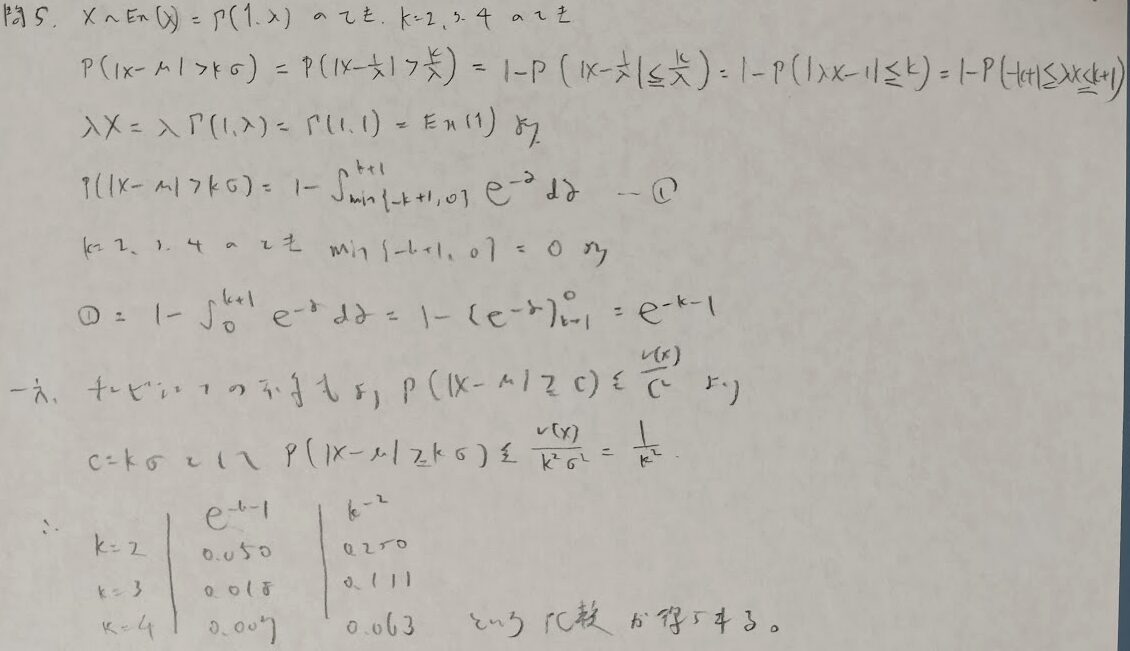 問5. X~Ex(λ) = Γ(1.λ) のとき. k=2, 3. 4 のとき
P(|X-μ|>kσ) = P(|X-1/λ|>k/λ) = 1-P(|X-1/λ|≦k/λ) = 1-P(|λX-1|≦k) = 1-P(-k+1≦λX≦k+1)
λX = λΓ(1,λ) = Γ(1,1) = Ex(1) より
P(|X-μ|>kσ) = 1-∫_{min{-k+1,0}}^{k+1} e^{-z} dz --- ①
k=2、3. 4 のとき min{-k+1, 0} = 0 より
① = 1-∫_0^{k+1} e^{-z} dz = 1-[e^{-z}]_{k+1}^0 = e^{-k-1}
一方、チェビシェフの不等式より P(|X-μ|≧c) ≦ V(X)/c² より
c=kσ として P(|X-μ|≧kσ) ≦ V(X)/k²σ² = 1/k².
∴ e^{-k-1} k^{-2}
k=2 0.050 0.250
k=3 0.018 0.111
k=4 0.007 0.063 という比較が得られる。